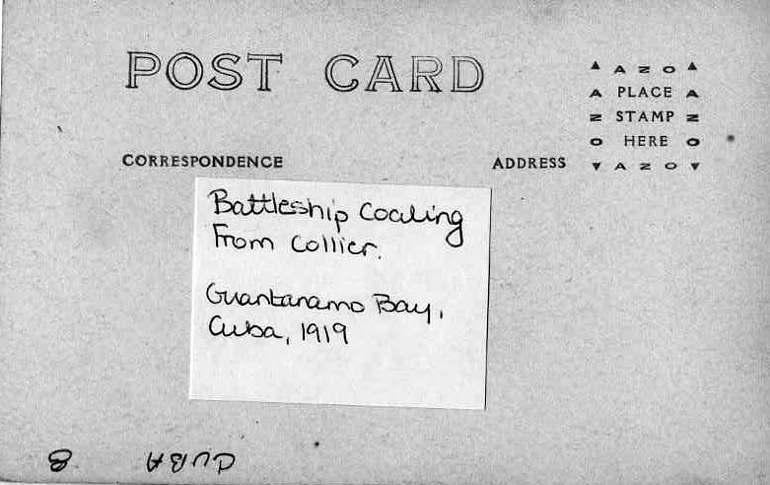 POST CARD
▲ A Z O ▲
A PLACE A
Z STAMP Z
O HERE O
▼ A Z O ▼
CORRESPONDENCE
ADDRESS
Battleship Coaling
From Collier.
Guantanamo Bay,
Cuba, 1919
CUBA
8